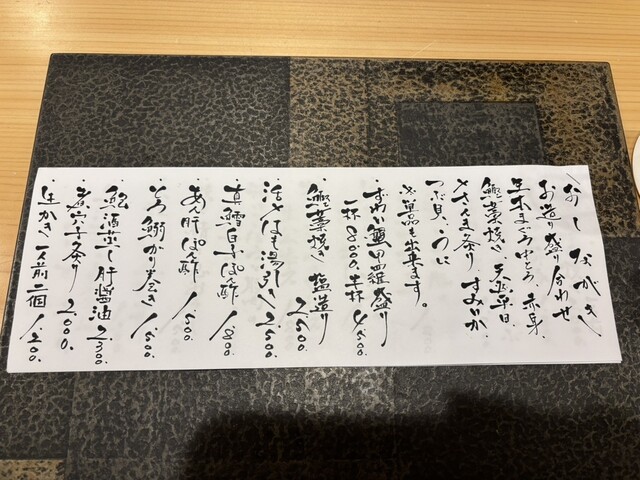 おしながき
・お造り盛り合わせ
生本まぐろ中とろ、赤身、
鰹藁焼き、天然平目、
〆さんま炙り、すみいか、
つぶ貝、うに
※単品も出来ます。
・ずわい蟹甲羅盛り
一杯8000、半杯4500.
・鰹藁焼き 塩造り
2500.
・活〆はも湯引き 2500.
・真鱈白子ぽん酢 1800.
・あん肝ぽん酢 1500.
・とろ鰯がり巻き 1500.
・鮑酒蒸し肝醤油 2500.
・煮穴子炙り 2000.
・生かき 一人前二個 1200.